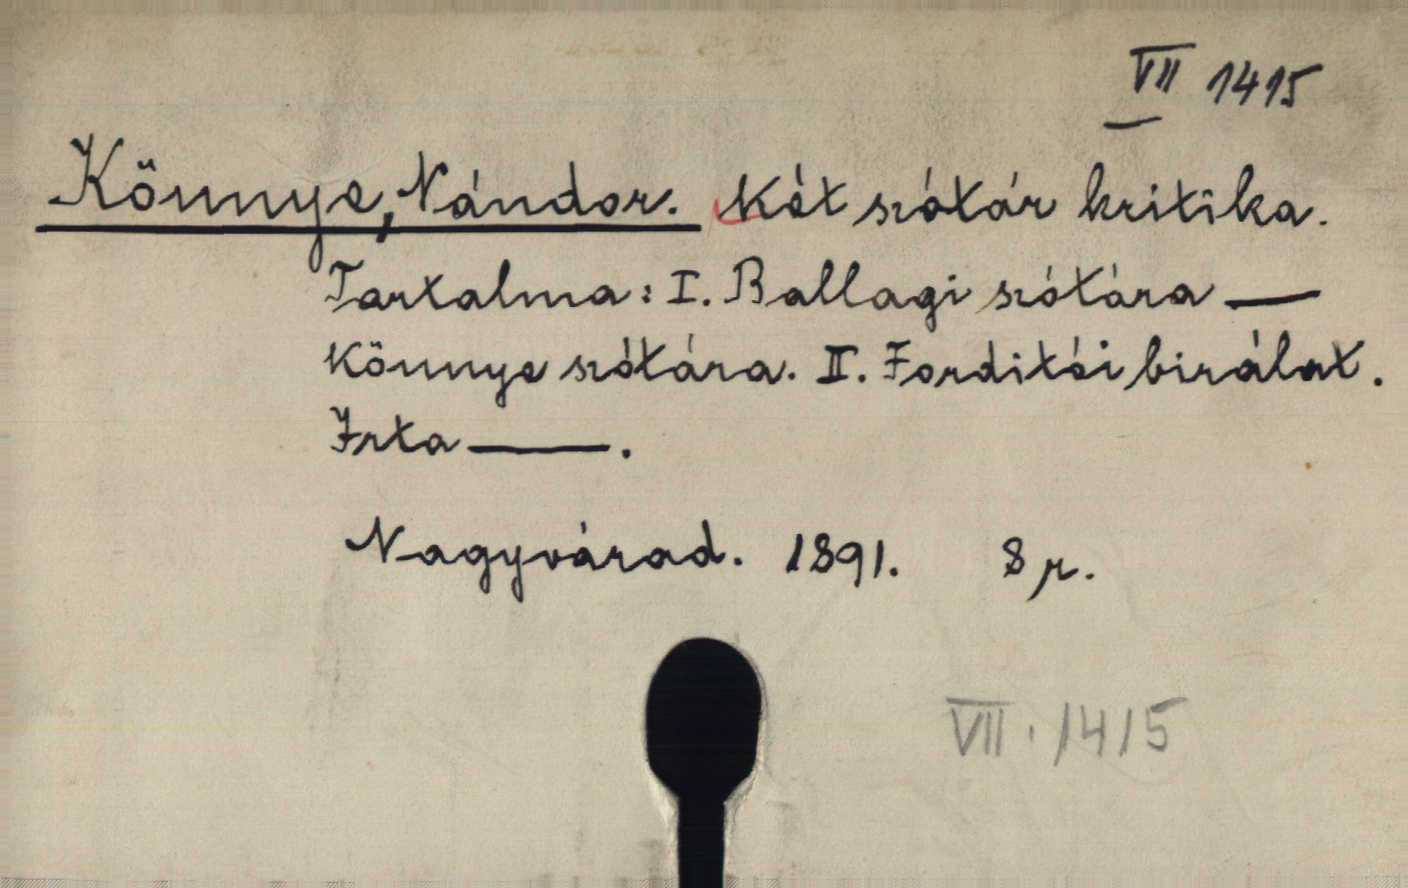 VII 1415
Könnye, Nándor. Két szótár kritika.
Tartalma: I. Ballagi szótára —
Könnye szótára. II. Forditói birálat.
Irta —.
Nagyvárad. 1891. 8 r.
VII. 1415